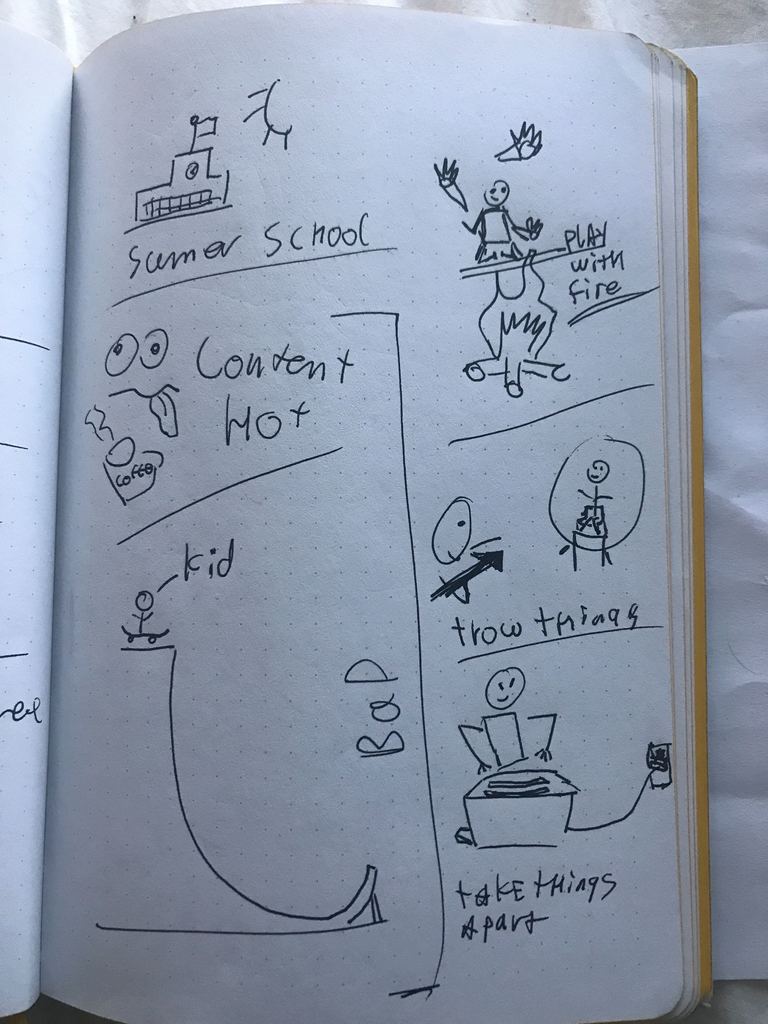 Sumer School
Content
Hot
Coffe
Kid
Bad
PLAY
with
fire
trow things
take things
Apart